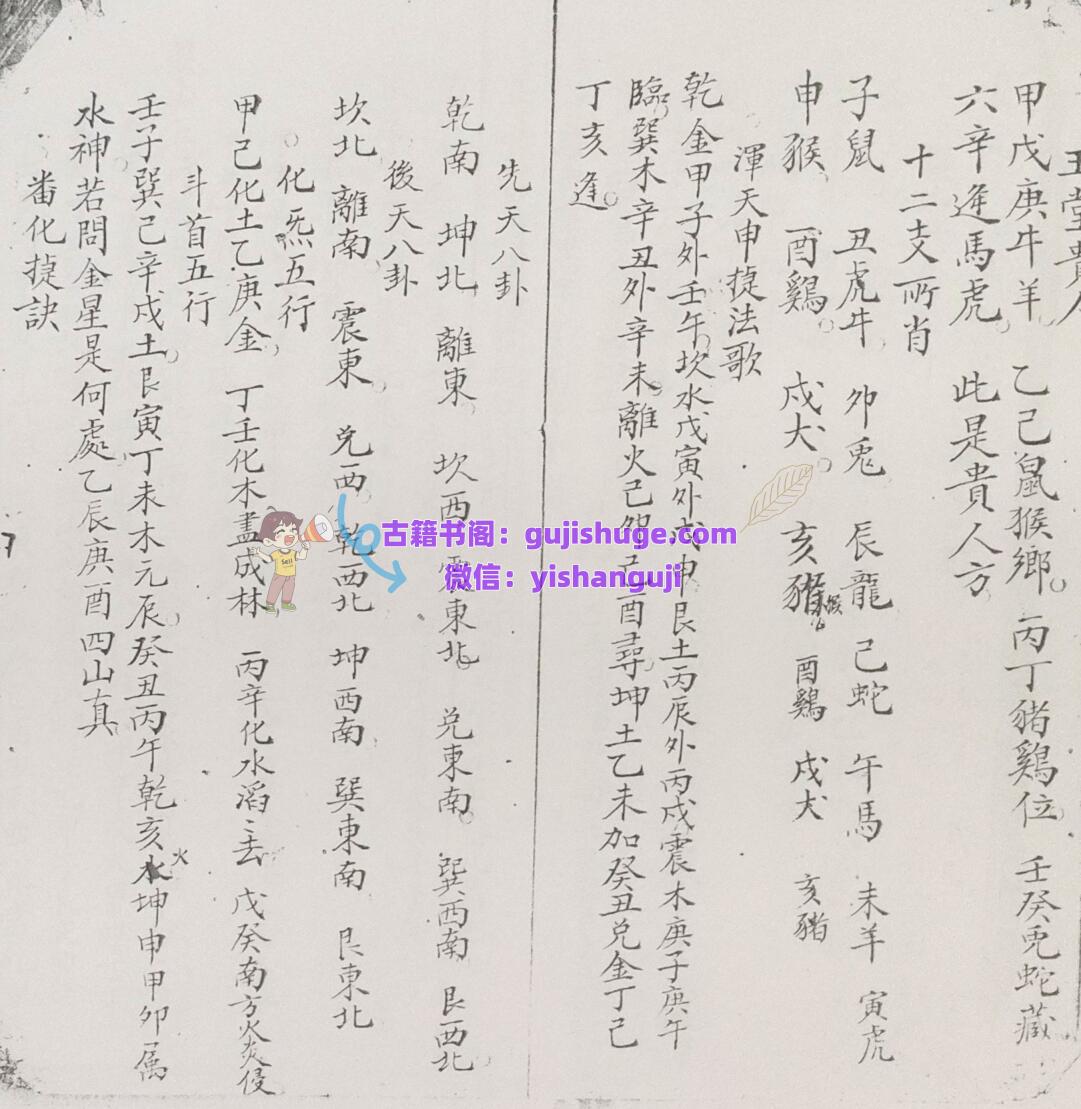 玉堂貴人
甲戊庚牛羊 乙己鼠猴鄉 丙丁豬鷄位 壬癸兎蛇藏
六辛逢馬虎 此是貴人方
十二支所肖
子鼠 丑虎牛 卯兎 辰龍 己蛇 午馬 未羊 寅虎
申猴 酉鷄 戍犬 亥豬 酉鷄 戍犬 亥豬
渾天甲㨗法歌
乾金甲子外壬午坎水戊寅外戊申艮土丙辰外丙戍震木庚子庚午
臨巽木辛丑外辛未離火己卯己酉尋坤土乙未加癸丑兌金丁己
丁亥逢
先天八卦
乾南 坤北 離東 坎西 震東北 兌東南 巽西南 艮西北
後天八卦
坎北 離南 震東 兌西 乾西北 坤西南 巽東南 艮東北
化炁五行
甲己化土乙庚金 丁壬化木盡成林 丙辛化水滔々去 戊癸南方火炎侵
斗首五行
壬子巽己辛戍土艮寅丁未木元辰癸丑丙午乾亥火坤申甲卯属
水神若問金星是何處乙辰庚酉四山真
番化㨗訣
古籍书阁：gujishuge.com
微信：yishanguji
Sell